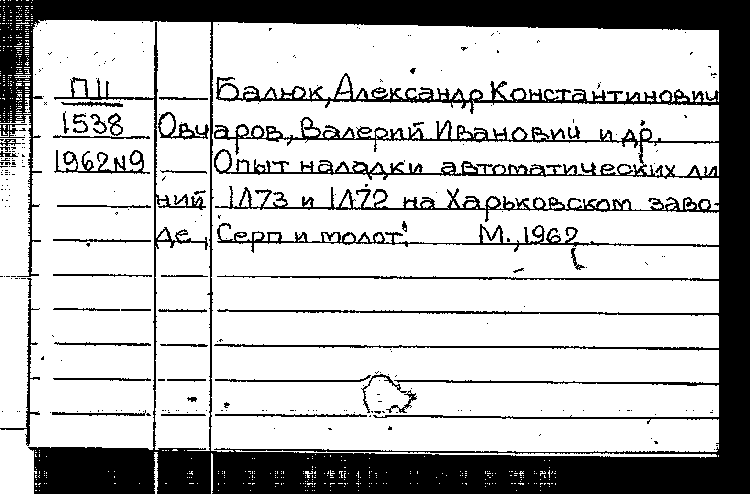 П11 Балюк, Александр Константинович
1538 Овчаров, Валерий Иванович и др.
1962 N9 Опыт наладки автоматических ли
ний 1Л73 и 1Л72 на Харьковском заво-
де „Серп и молот". М., 1962.